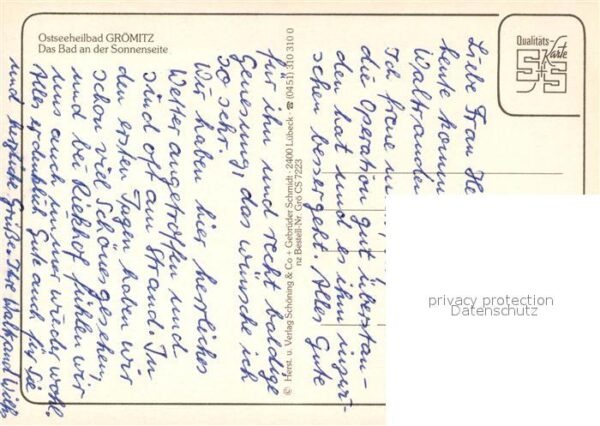 Ostseeheilbad GRÖMITZ
Das Bad an der Sonnenseite
Qualitäts-Karte
S+S
Liebe Frau He
heute komme
Waltraud
Ich freue
die Operation gut überstan-
den hat und es ihm inzwi-
schen besser geht. Alles Gute
für ihn und recht baldige
Genesung, das wünsche ich
so sehr.
Wir haben hier herrliches
Wetter angetroffen und
sind oft am Strand. In
den ersten Tagen haben wir
schon viel Schönes gesehen,
und bei Riekhof fühlen wir
uns auch immer wieder wohl.
Alles erdenklich Gute auch für Sie
und herzliche Grüße. Ihre Waltraud
© Herst. u. Verlag Schöning & Co + Gebrüder Schmidt · 2400 Lübeck · ☎ (0451) 310 310 0
nz Bestell-Nr. Grö CS 7223
privacy protection
Datenschutz